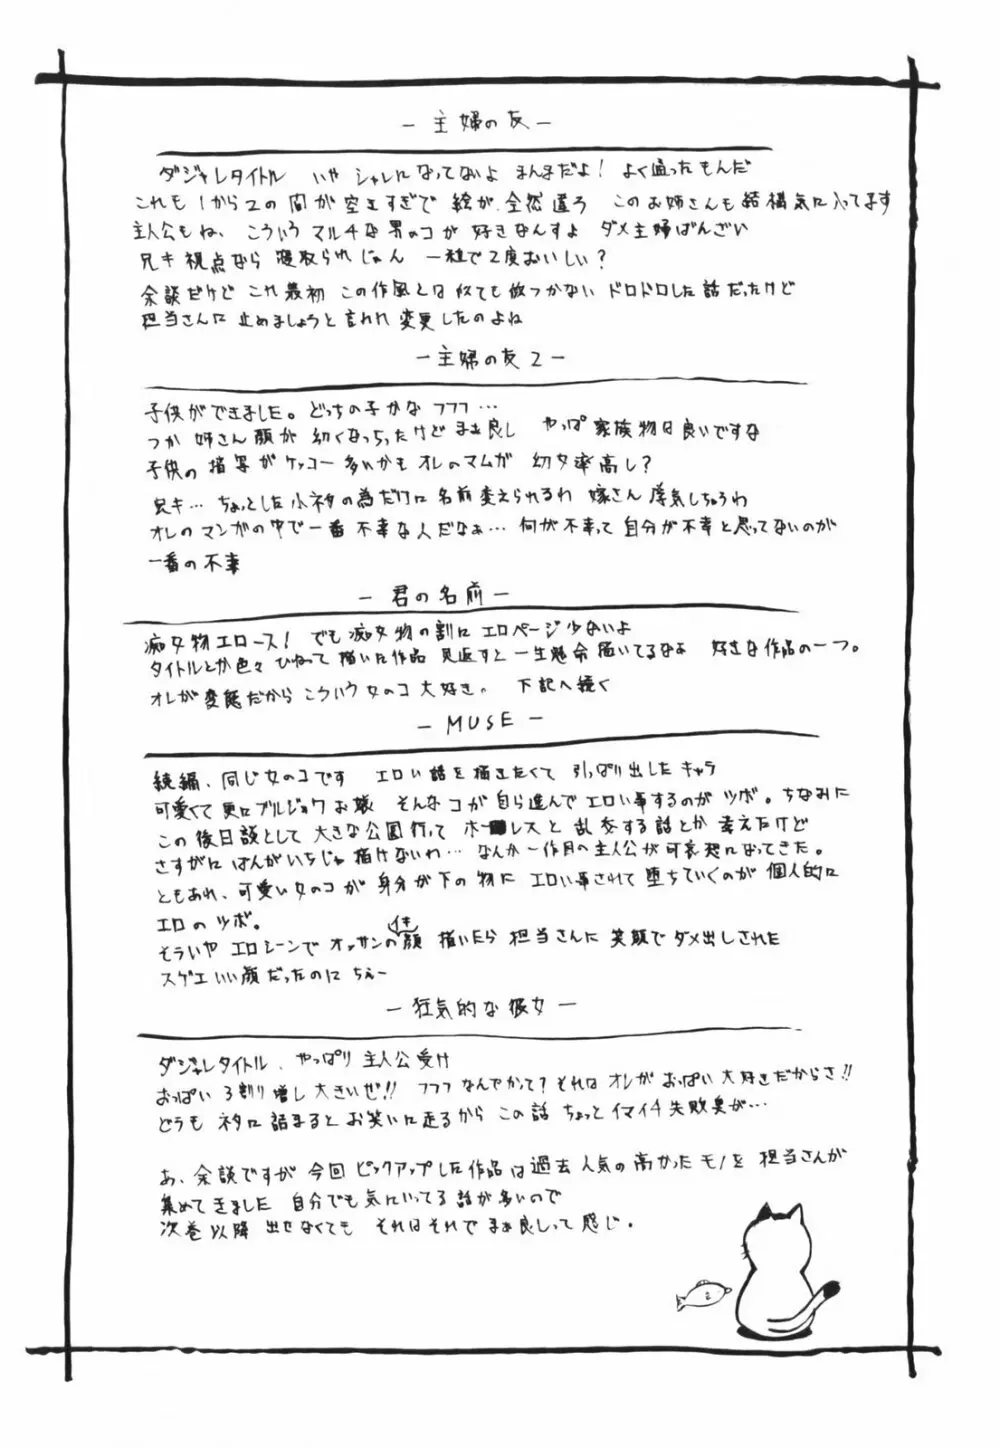 ― 主婦の友 ―
ダジャレタイトル いや シャレになってないよ まんまだよ! よく通ったもんだ
これも 1から2の 間が 空きすぎで 絵が、全然違う このお姉さんも 結構気に入ってます
主人公もね、こういう マルチな 男のコが 好きなんすよ ダメ主婦ばんざい
兄キ 視点なら 寝取られじゃん 一粒で2度おいしい?
余談だけど これ最初 この作風とは 似ても似つかない ドロドロした話だったけど
担当さんに 止めましょうと言われ 変更したのよね
― 主婦の友 2 ―
子供ができました。どっちの子かな フフフ…
つか 姉さん 顔が 幼くなっちったけど まぁ良し やっぱ 家族物は良いですな
子供の 描写が ケッコー 多いかも オレのマンガ 幼女率高し?
兄キ… ちょっとした小ネタの為だけに 名前 変えられるわ 嫁さん 浮気しちゃうわ
オレの マンガの中で一番 不幸な人だなぁ… 何が不幸って 自分が不幸と思ってないのが
一番の不幸
― 君の名前 ―
痴女物エロース! でも痴女物の割に エロページ少ないよ
タイトルとか色々 ひねって 描いた作品 見返すと 一生懸命描いてるなよ 好きな作品の一つ。
オレが変態だから こういう女のコ大好き。 下記へ続く
― MUSE ―
続編、同じ女のコです エロい話を描きたくて 引っぱり出したキャラ
可愛くて 更にブルジョワお嬢 そんなコが自ら進んで エロい事するのが ツボ。ちなみに
この後日談として 大きな公園行って ホレスと 乱交する話とか 考えたけど
さすがに はんがいちじゃ 描けないわ… なんか一作目の主人公が可哀想になってきた。
ともあれ、可愛い女のコが 身分が下の物に エロい事されて 堕ちていくのが 個人的に
エロのツボ。
そういや エロシーンで オッサンのイキ顔 描いたら 担当さんに 笑顔で ダメ出しされた
スゲエいい顔だったのに ちぇー
― 狂気的な彼女 ―
ダジャレタイトル、やっぱり 主人公受け
おっぱい 3割り増し 大きいぜ!! フフフ なんでかって? それは オレが おっぱい大好きだからさ!!
どうも ネタに 詰まると お笑いに走るから この話 ちょっとイマイチ失敗臭が…
あ、余談ですが 今回 ピックアップした作品は過去 人気の高かったモノを 担当さんが
集めてきました 自分でも気にいってる話が多いので
次巻以降 出せなくても それはそれで まぁ良しって感じ。